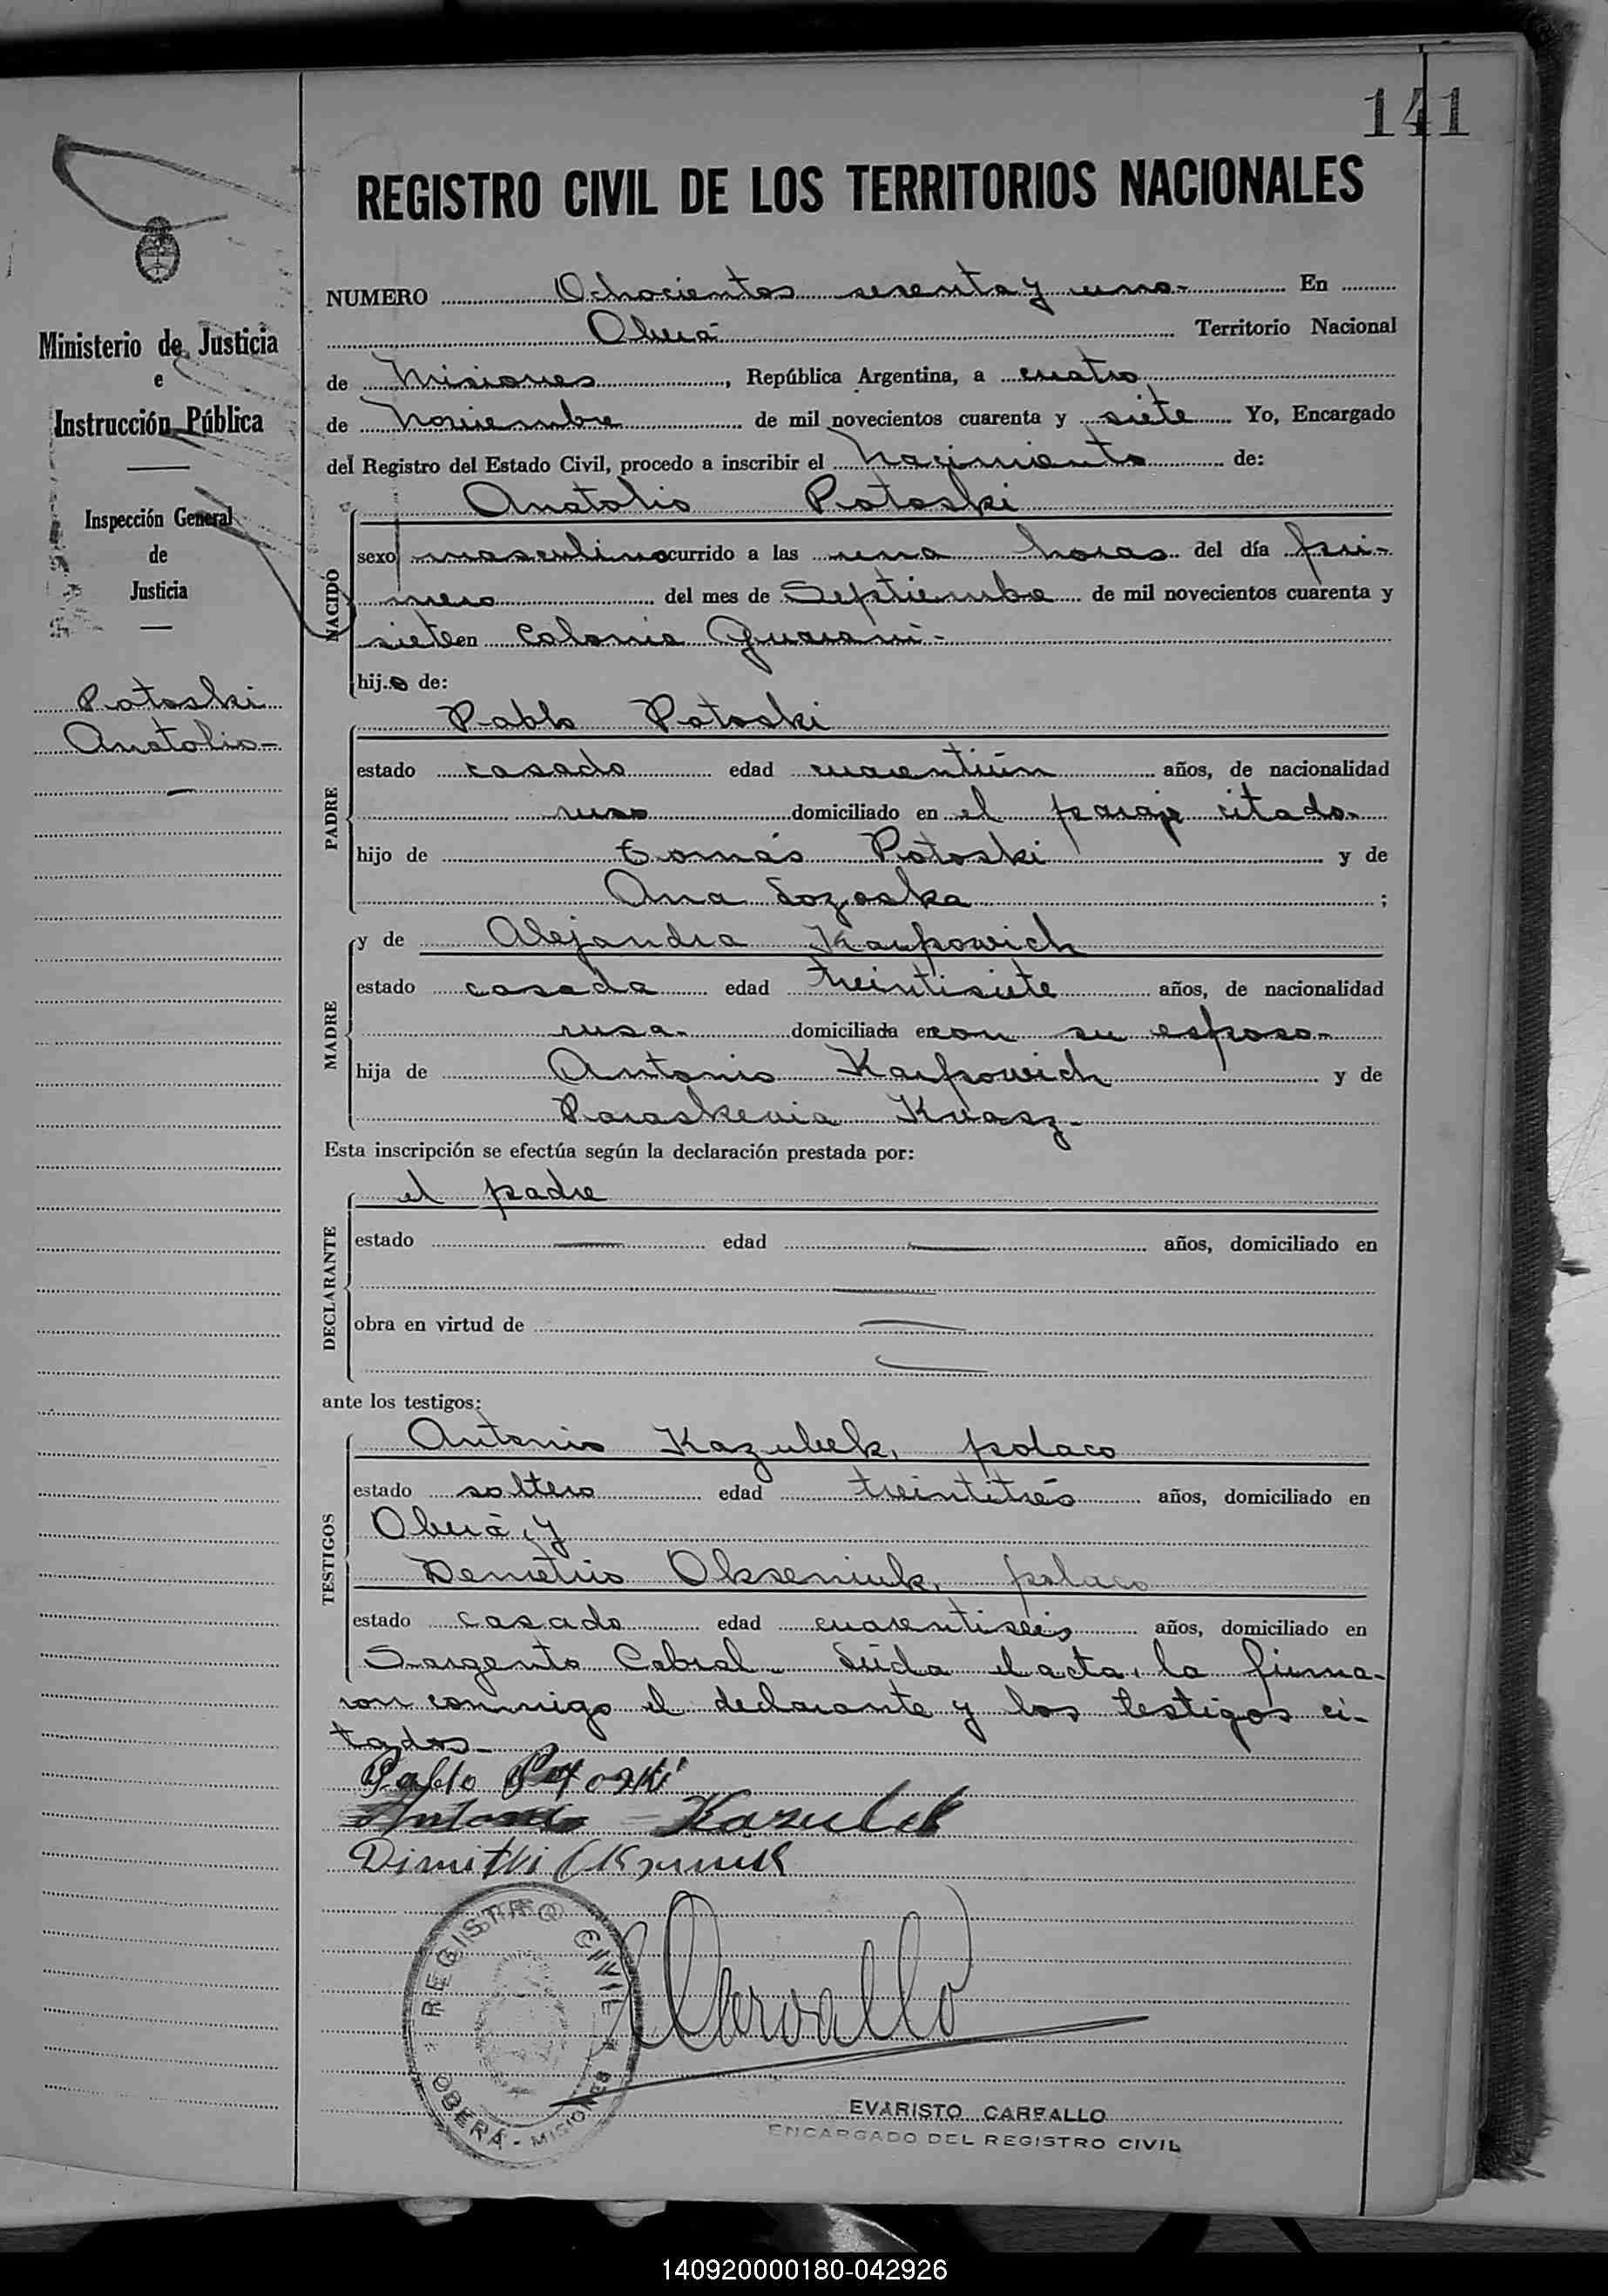 141
REGISTRO CIVIL DE LOS TERRITORIOS NACIONALES
NUMERO Ochocientos sesenta y uno- En
Oberá Territorio Nacional
de Misiones, República Argentina, a cuatro
de Noviembre de mil novecientos cuarenta y siete Yo, Encargado
del Registro del Estado Civil, procedo a inscribir el Nacimiento de:
Ministerio de Justicia
e
Instrucción Pública
Inspección General
de
Justicia
Potoski
Anatolio-
NACIDO
Anatolio Potoski
sexo masculino ocurrido a las una horas del día pri-
mero del mes de Septiembre de mil novecientos cuarenta y
siete en Colonia Guaraní-
hijo de:
PADRE
Pablo Potoski
estado casado edad cuarentiún años, de nacionalidad
ruso domiciliado en el paraje citado.
hijo de Tomás Potoski y de
Ana Sozoska;
MADRE
y de Alejandra Karpowich
estado casada edad treintisiete años, de nacionalidad
rusa- domiciliada en con su esposo-
hija de Antonio Karpowich y de
Paraskevia Kvasz-
Esta inscripción se efectúa según la declaración prestada por:
DECLARANTE
el padre
estado — edad — años, domiciliado en
—
obra en virtud de —
—
ante los testigos:
TESTIGOS
Antonio Kazubek, polaco
estado soltero edad treintitrés años, domiciliado en
Oberá, y
Demetrio Okseniuk, polaco
estado casado edad cuarentiseis años, domiciliado en
Sargento Cabral. Leída el acta, la firma-
ron conmigo el declarante y los testigos ci-
tados-
Pablo Potoski
Antonio Kazubek
Dimitri
REGISTRO CIVIL
OBERÁ - MISIONES
Carvallo
EVARISTO CARVALLO
ENCARGADO DEL REGISTRO CIVIL
140920000180-042926